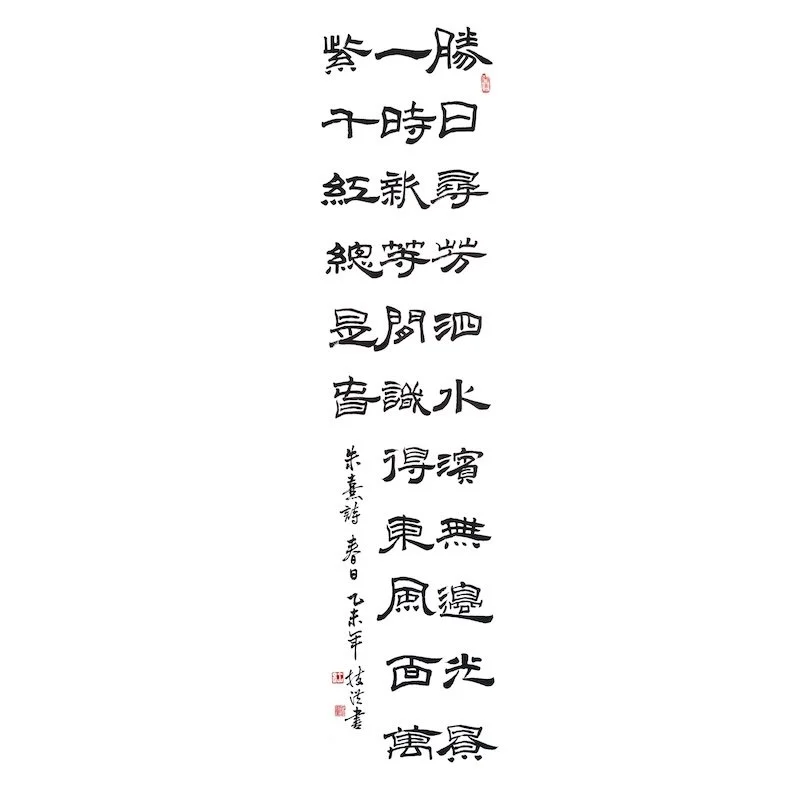 勝日尋芳泗水濱無邊光景
一時新等閒識得東風面萬
紫千紅總是春
朱熹詩 春日 乙未年
書